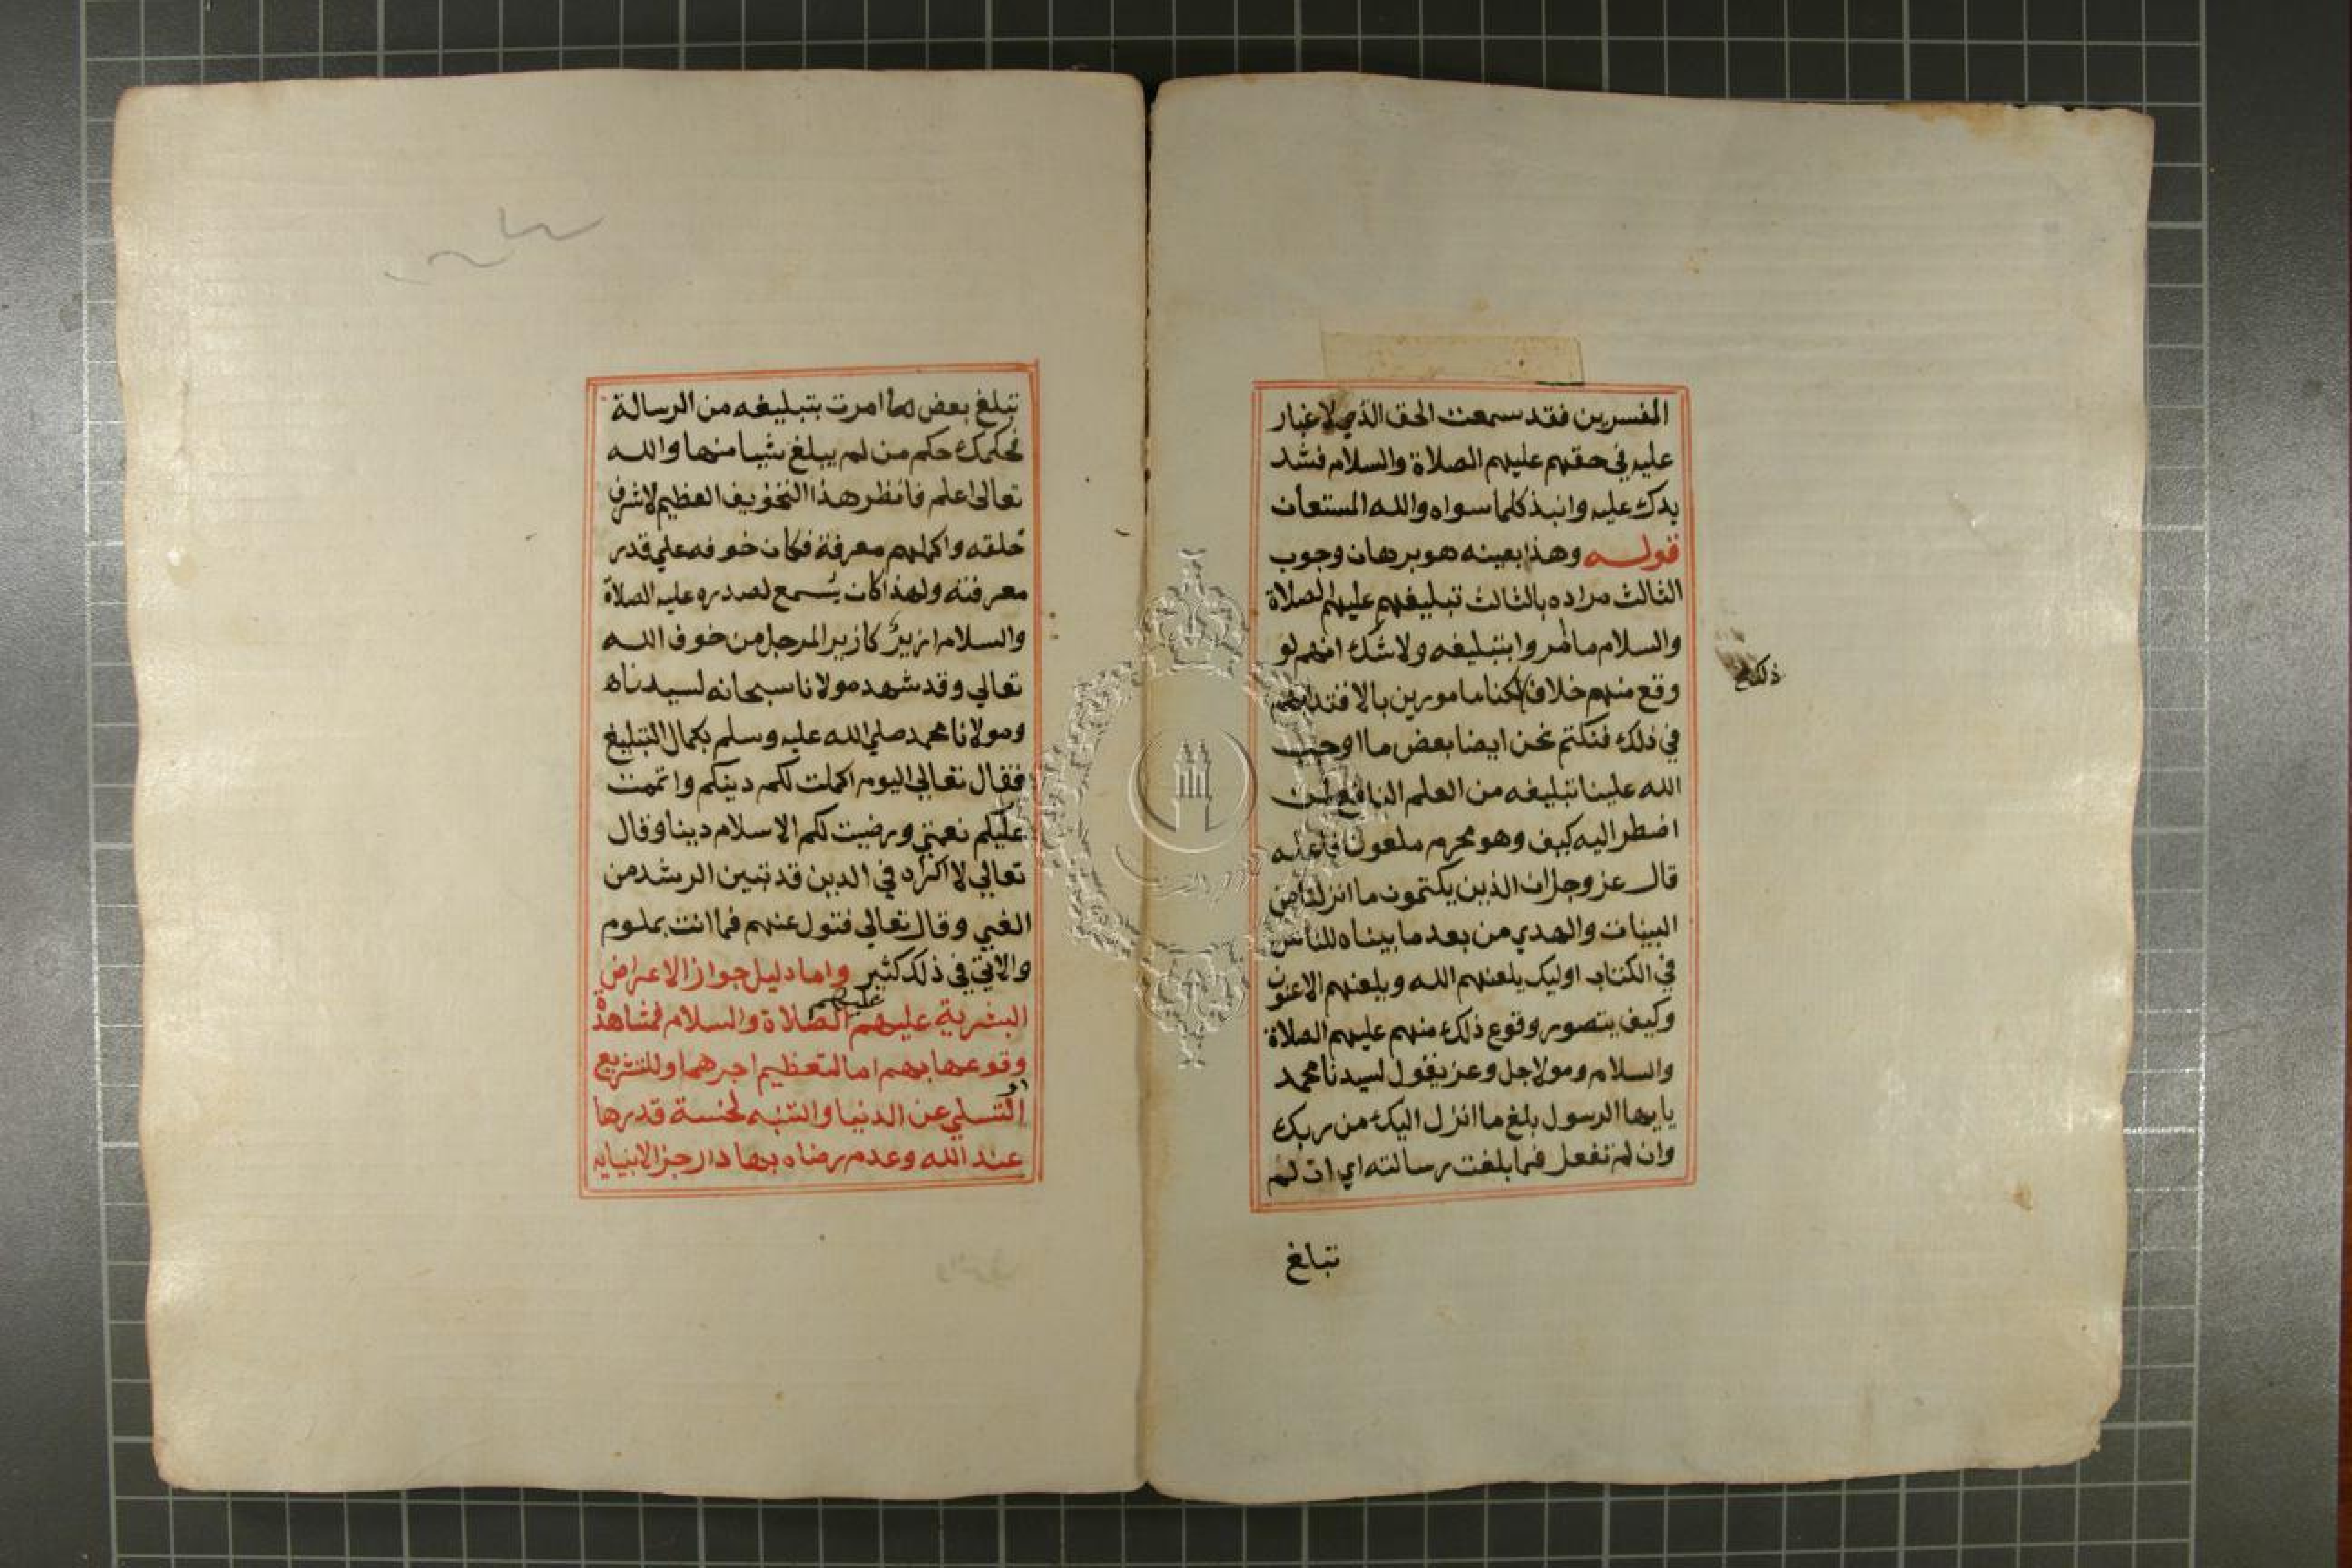 المفسرين فقد سمعت الحق الذي لا غبار
عليه في حقهم عليهم الصلاة والسلام فشد
يدك عليه وانبذ كلما سواه والله المستعان
قوله وهذا بعينه هو برهان وجوب
الثالث مراده بالثالث تبليغهم عليهم الصلاة
والسلام ما أمروا بتبليغه ولا شك انهم لو
وقع منهم خلاف لكنا مامورين بالاقتدا بهم
ذلك
في ذلك فنكتم نحن ايضا بعض ما اوجب
الله علينا تبليغه من العلم النافع لمن
اضطر اليه كيف وهو محرم ملعون فاعله
قال عز وجل ان الذين يكتمون ما انزلنا من
البينات والهدي من بعد ما بيناه للناس
في الكتاب اوليك يلعنهم الله ويلعنهم الاعنون
وكيف يتصور وقوع ذلك منهم عليهم الصلاة
والسلام ومولا جل وعز يقول لسيدنا محمد
يايها الرسول بلغ ما انزل اليك من ربك
وان لم تفعل فما بلغت رسالته اي ان لم
تبلغ
تبلغ بعض ما امرت بتبليغه من الرسالة
فحكمك حكم من لم يبلغ شيا منها والله
تعالى اعلم فانظر هذا التخويف العظيم لاشرف
خلقه واكملهم معرفة فكان خوفه علي قدر
معرفته ولهذا كان يسمع لصدره عليه الصلاة
والسلام ازيز كازيز المرجل من خوف الله
تعالي وقد شهد مولانا سبحانه لسيدناه
ومولانا محمد صلي الله عليه وسلم بكمال التبليغ
فقال تعالي اليوم اكملت لكم دينكم واتممت
عليكم نعمتي ورضيت لكم الاسلام دينا وقال
تعالي لا اكراه في الدين قد تبين الرشد من
الغي وقال تعالي فتول عنهم فما انت بملوم
والاي في ذلك كثير واما دليل جواز الاعراض
عليهم
البشرية عليهم الصلاة والسلام فمشاهدة
وقوعها بهم اما لتعظيم اجرهم او للتشريع
او
التسلي عن الدنيا والتنبه لخسة قدرها
عند الله وعدم رضاه بها دار جزا لانبيايه